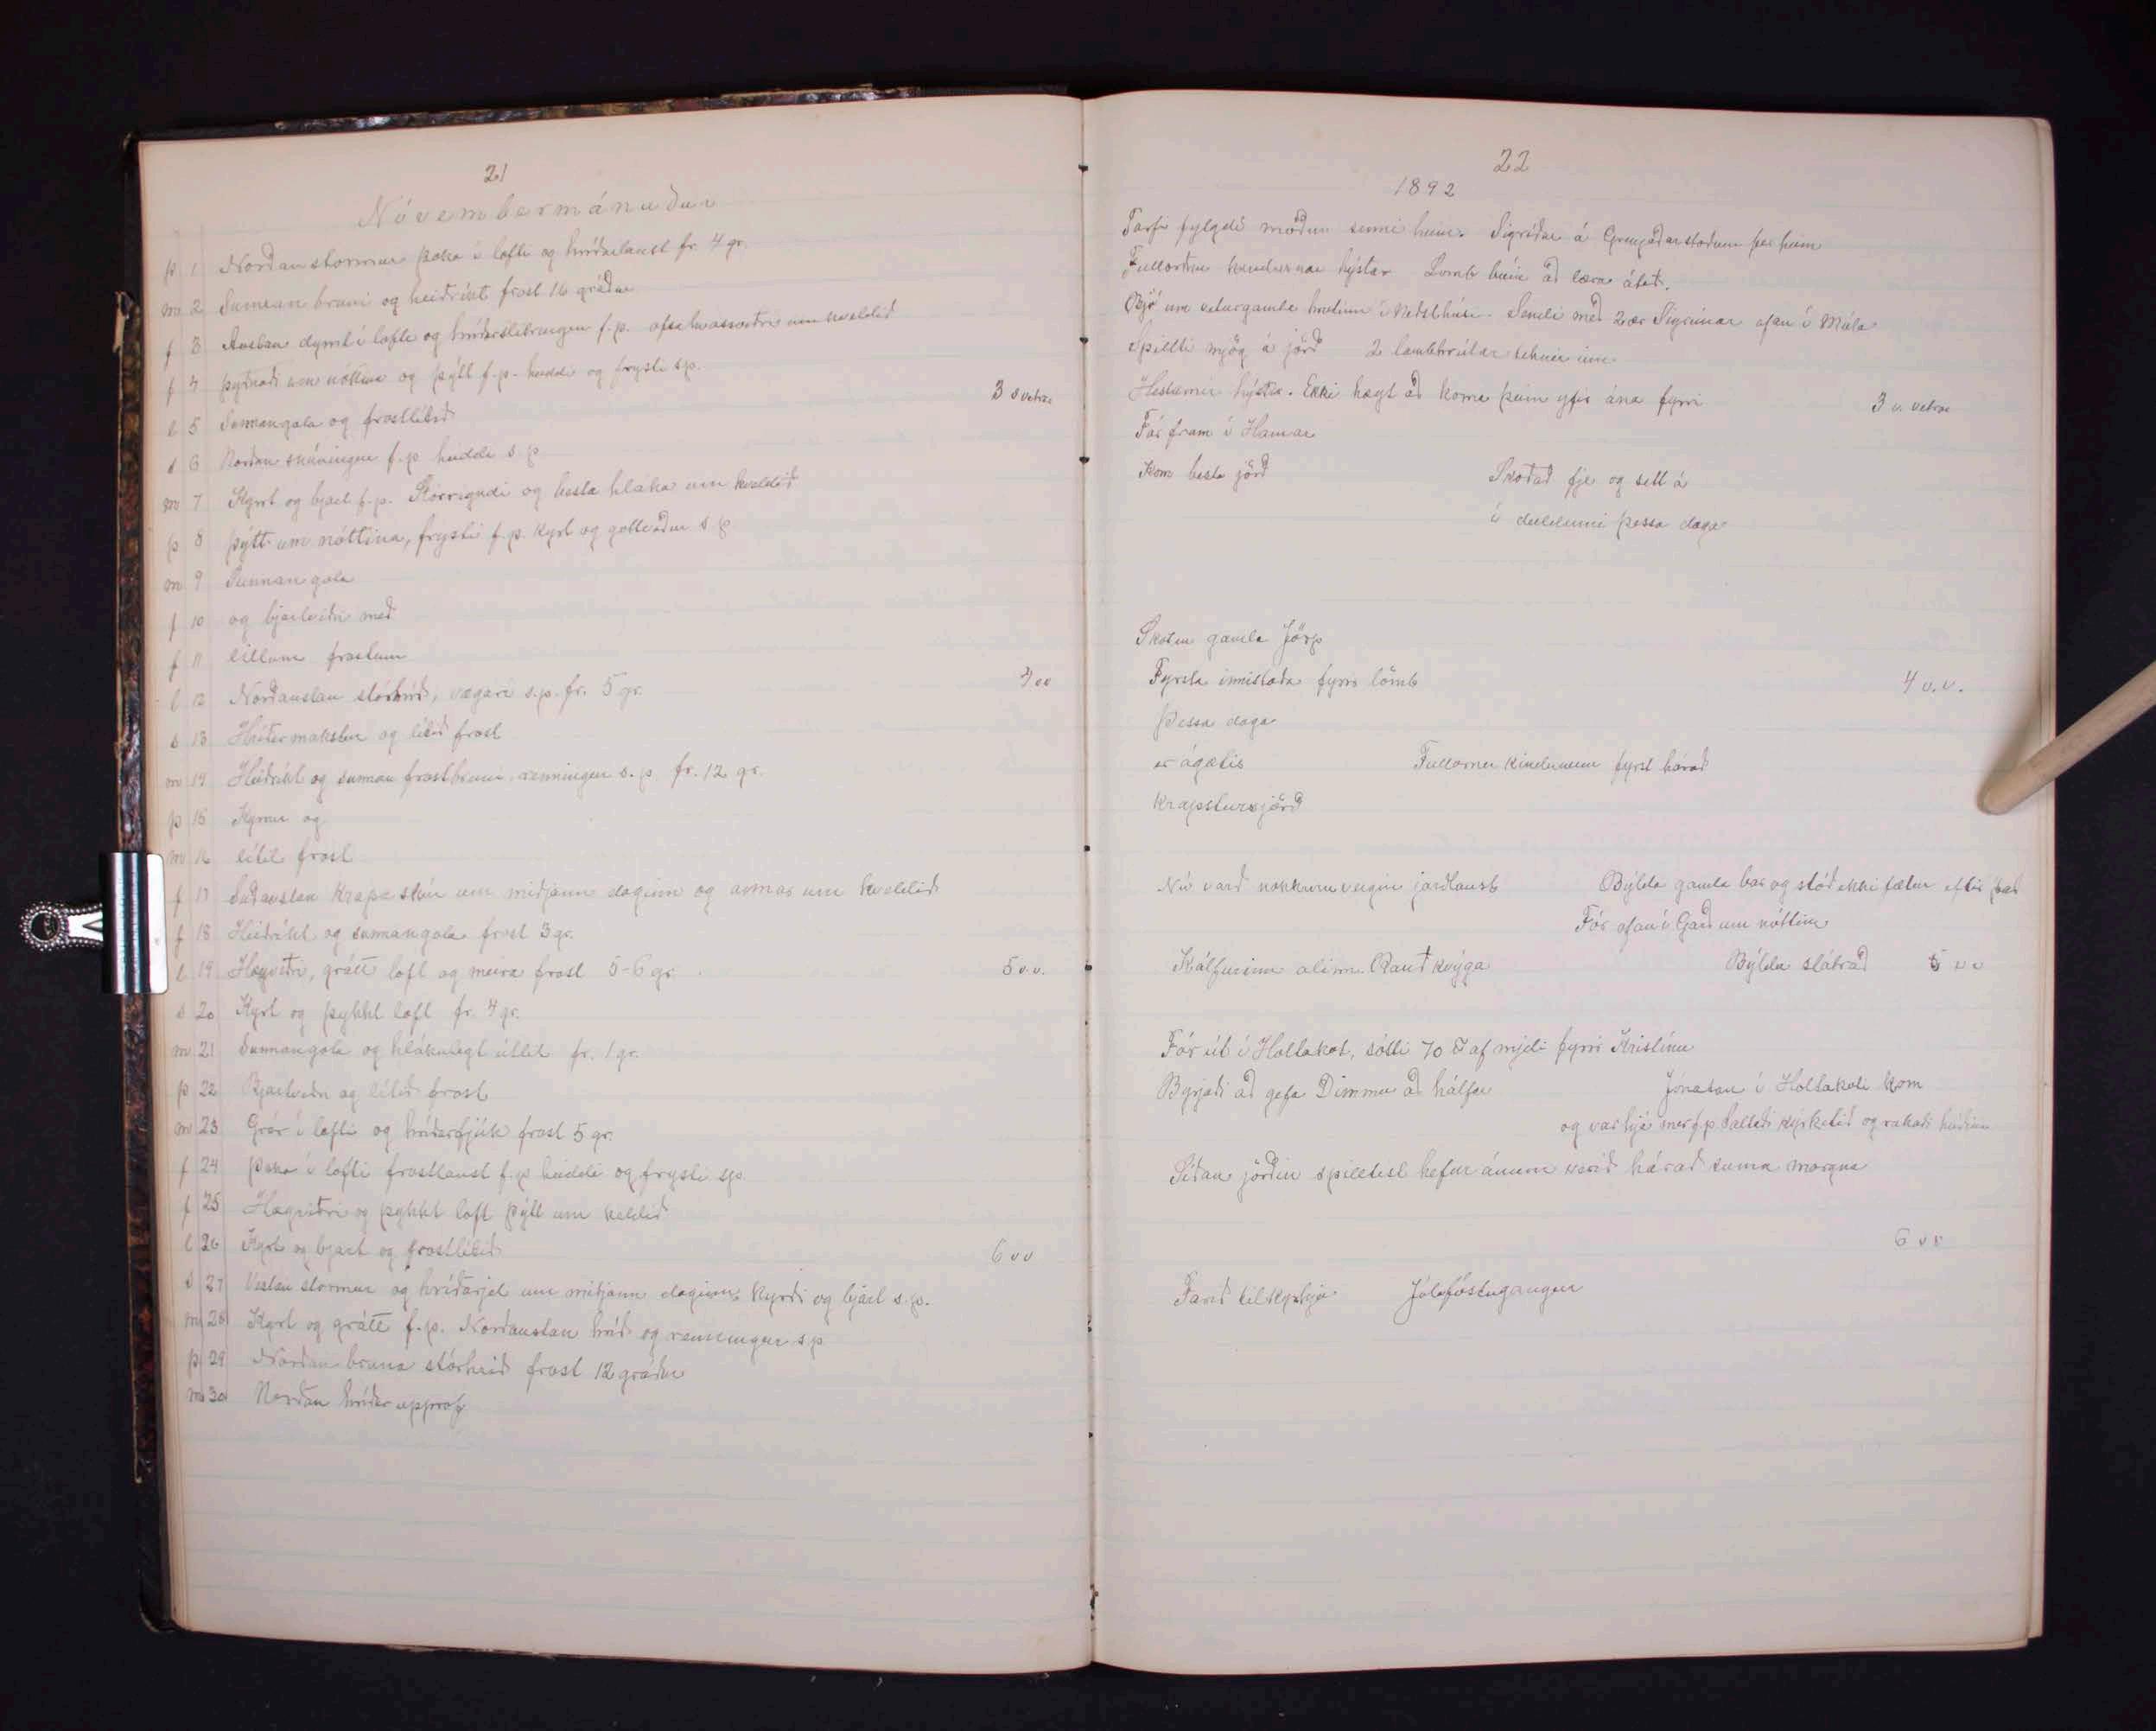 21
Nóvembermánuður
þ 1 Norðan stormur þoka í lofti og hríðarlaust fr. 4 gr.
m 2 Sunnan bruni og heiðríkt frost 16 gráður
f 3 Austan dymt í lofti og hríðarslitringur f.p. ofsahvassviðri um kveldið
f 4 þyðnaði um nóttina og þýtt f.p. heiddi og frysti s.p.
l 5 Sunnangola og frostlítið
3 v vetrar
s 6 Norðan f.p. heiddi s.p.
m 7 Kyrt og bjart f.p. Stórrigndi og besta hlaka um kveldið
þ 8 þýtt um nóttina, frysti f.p. kyrt og gott veður s.p
m 9 Sunnan gola
f 10 og bjartviðri með
f 11 litlum frostum
l 12 Norðaustan stórhríð, vægari s.p. fr. 5 gr.
4 vv
s 13 og lítið frost
m 14 Heiðríkt og sunnan frostbruni renningur s.p. fr. 12 gr.
þ 15 Kyrrur og
m 16 lítil frost
f 17 Suðaustan krapa skúr um miðjann daginn og annar um kveldið
f 18 Heiðríkt og sunnangola frost 3 gr.
l 19 Hægviðri, grátt loft og meira frost 5-6 gr.
5 v.v.
s 20 Kyrt og þykkt loft fr. 4 gr.
m 21 Sunnangola og hlákulegt útlit fr. 1 gr.
þ 22 Bjartviðri og lítið frost
m 23 Grár í lofti og hríðarfjúk frost 5 gr.
f 24 þoka í lofti frostlaust f.p heiddi og frysti s.p.
f 25 Hægviðri og þykkt loft þýtt um kveldið
l 26 Kyrt og bjart og frostlítið
6 vv
s 27 Vestan stormur og hríðarjel um miðjann daginn, kyrði og bjart s.p.
m 28 Kyrt og grátt f.p. Norðaustan hríð og renningur s.p
þ 29 Norðan bruna stórhríð frost 12 gráður
m 30 Norðan hríðar upprof
22
1892
Tarfi fylgdi móður sinni heim. Sigríður á Grenjaðarstöðum fer heim
Fullorðnu kindurnar hýstar Lomb húin að læra átið.
Bjó um veturgamla hrútinn í Sendi með 2 ær Sigrúnar ofan í Múla
Spillti mjög á jörð 2 lambhrútar teknir inn
Hestarnir hýstir. Ekki hægt að koma þeim yfir ána fyrri
3 v. vetrar
Fór fram í Hamar
Kom besta jörð Skoðað fje og sett á
í deildinni þessa daga
Skotin gamla Jörp
Fyrsta innistaða fyrir lömb
4 v.v.
Þessa daga
er ágætis Fullornu kindunum fyrst hárað
krapstursjörð
Nú varð nokkurnveginn jarðlaust Býlda gamla bar og stóð ekki fætur eftir það
Fór ofan í Garð um nóttina
Kálfurinn alinn. Rauð kvýga Býlda slátrað 5 v v
Fór út í Holtakot, sótti 70 ℔ af mjeli fyrir Kristínu
Byrjaði að gefa Dimmu að hálfu Jónatan í Holtakoti kom
og var hjá mer f.p. Saltaði kýrketið og rakaði húðina
Síðan jörðin spilltist hefur ánum verið hárað suma morgna
6 vv
Farið til kyrkju Jólaföstugangur